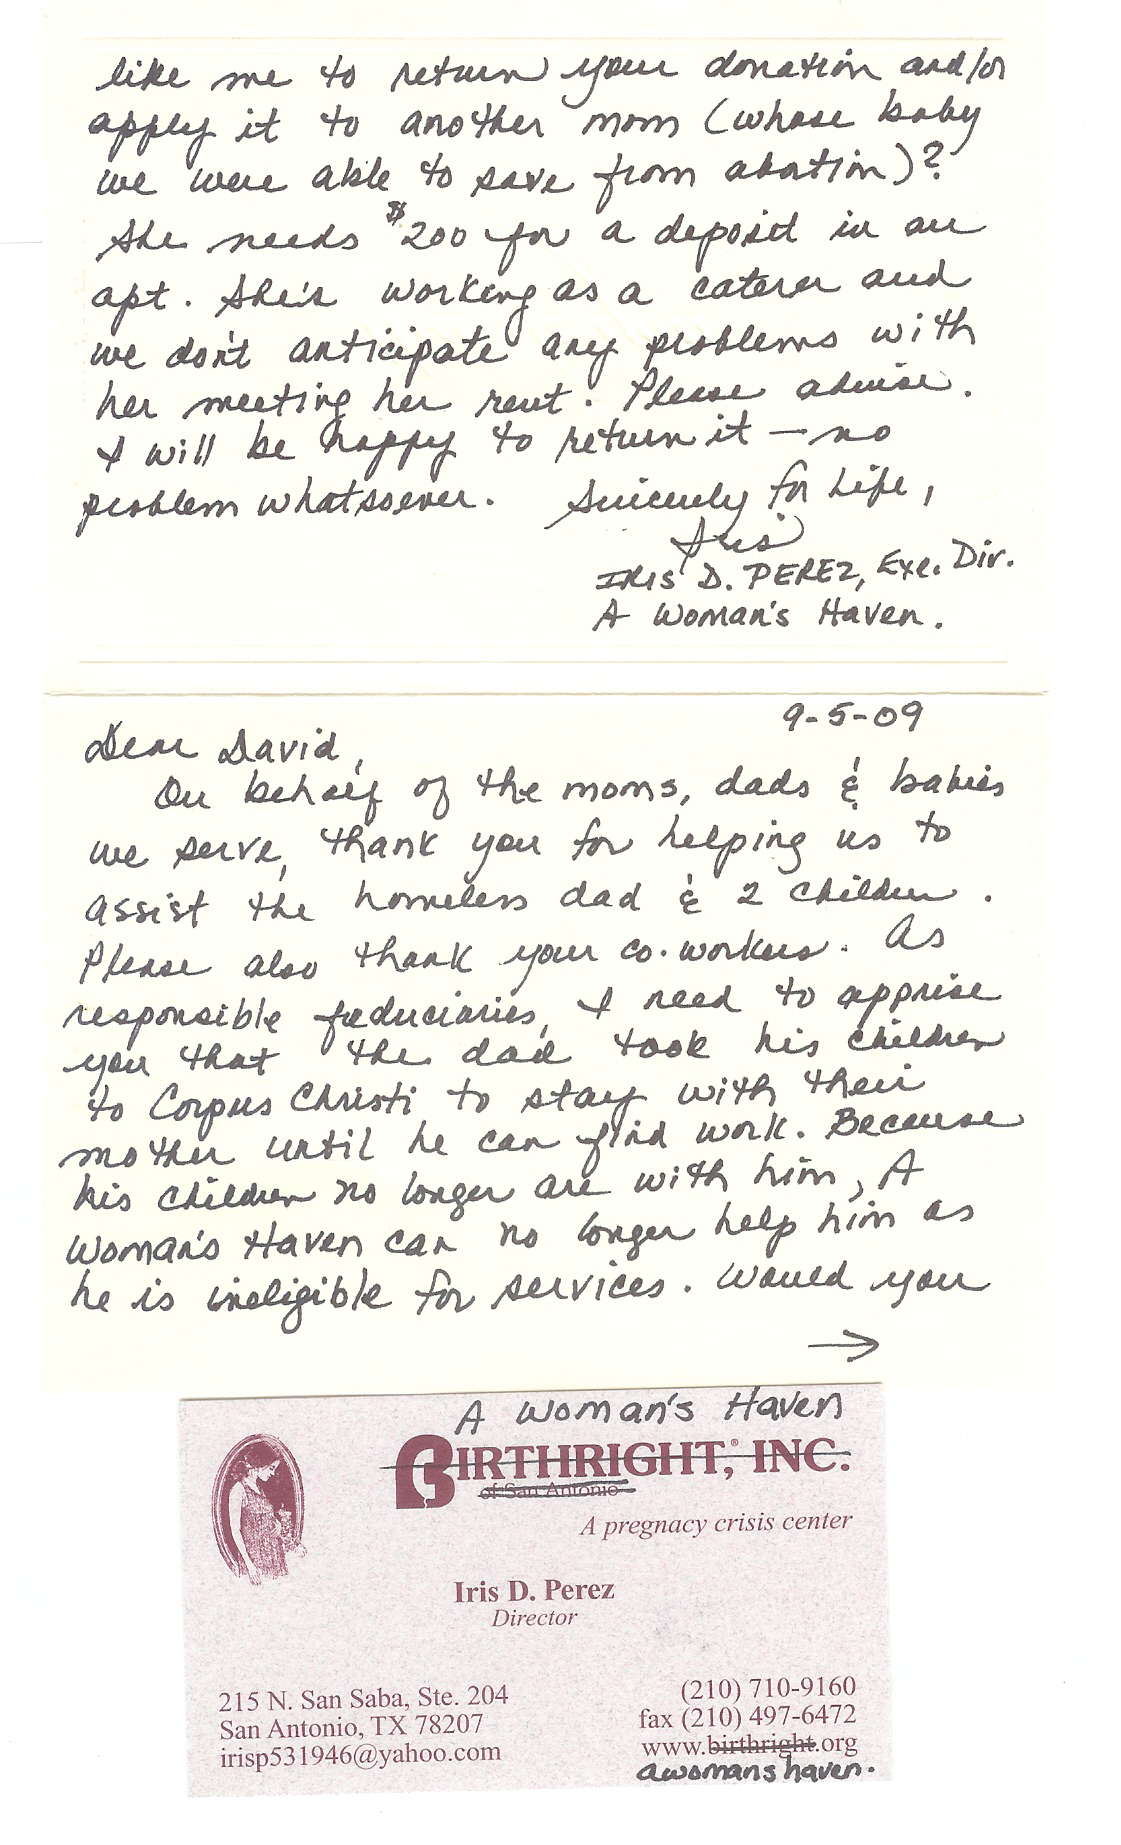 like me to return your donation and/or
apply it to another mom (whose baby
we were able to save from abortion)?
She needs $200 for a deposit in an
apt. She's working as a caterer and
we don't anticipate any problems with
her meeting her rent. Please advise.
I will be happy to return it — no
problem whatsoever. Sincerely for Life,
Iris
IRIS D. PEREZ, Exe. Dir.
A Woman's Haven.
9-5-09
Dear David,
On behalf of the moms, dads & babies
we serve, thank you for helping us to
assist the homeless dad & 2 children.
Please also thank your co-workers. As
responsible feduciaries, I need to apprise
you that the dad took his children
to Corpus Christi to stay with their
mother until he can find work. Because
his children no longer are with him, A
Woman's Haven can no longer help him as
he is ineligible for services. Would you
→
A Woman's Haven
BIRTHRIGHT,® INC.
of San Antonio
A pregnacy crisis center
Iris D. Perez
Director
215 N. San Saba, Ste. 204
San Antonio, TX 78207
irisp531946@yahoo.com
(210) 710-9160
fax (210) 497-6472
www.birthright.org
awomanshaven.